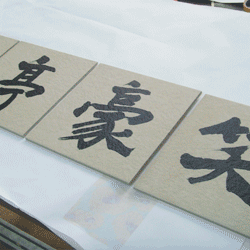 笑豪亭